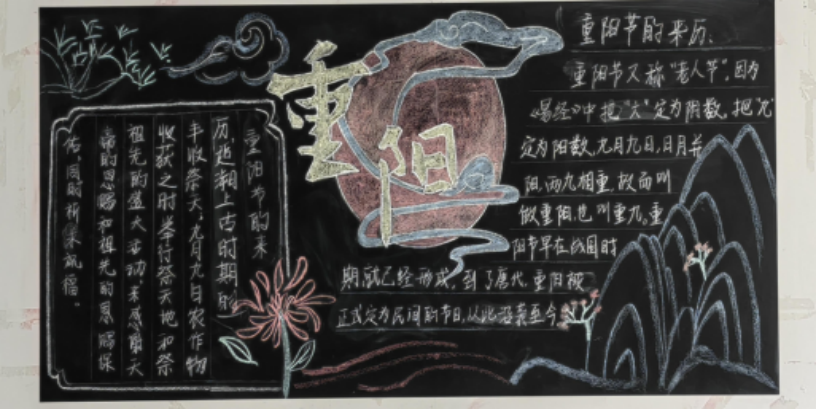 重阳
重阳节的来历、
重阳节又称"老人节",因为
《易经》中把"六"定为阴数,把"九"
定为阳数,九月九日,日月并
阳,两九相重,故而叫
做重阳,也叫重九。重
阳节早在战国时
期就已经形成,到了唐代,重阳被
正式定为民间的节日,从此沿袭至今
重阳节的来
历追溯上古时期的
丰收祭天,九月九日农作物
收获之时举行祭天地和祭
祖先的盛大活动来感谢天
帝的恩赐和祖先的恩赐保
佑,同时祈求祝福。